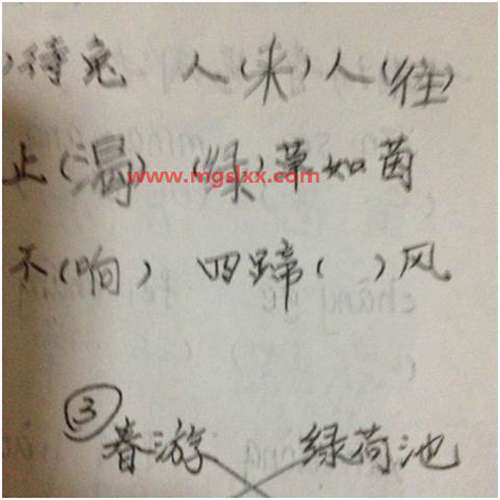 )待兔 人(来)人(往)
止(渴) (绿)草如茵
www.mgslxx.com
不(响) 四蹄( )风
③
春游 绿荷池